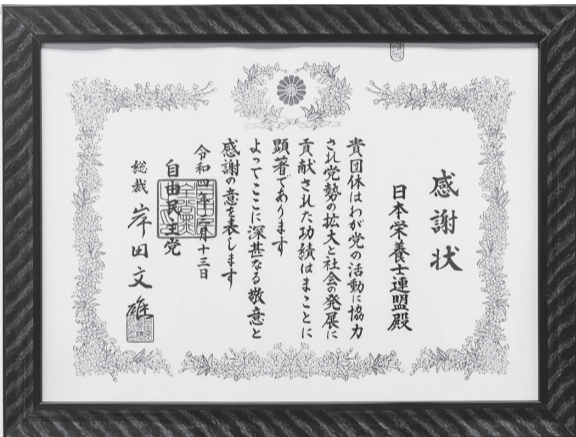 感謝状
日本栄養士連盟殿
貴団体はわが党の活動に協力
され党勢の拡大と社会の発展に
貢献された功績はまことに
顕著であります
よってここに深甚なる敬意と
感謝の意を表します
令和四年 月十三日
自由民主党
総裁 岸田文雄